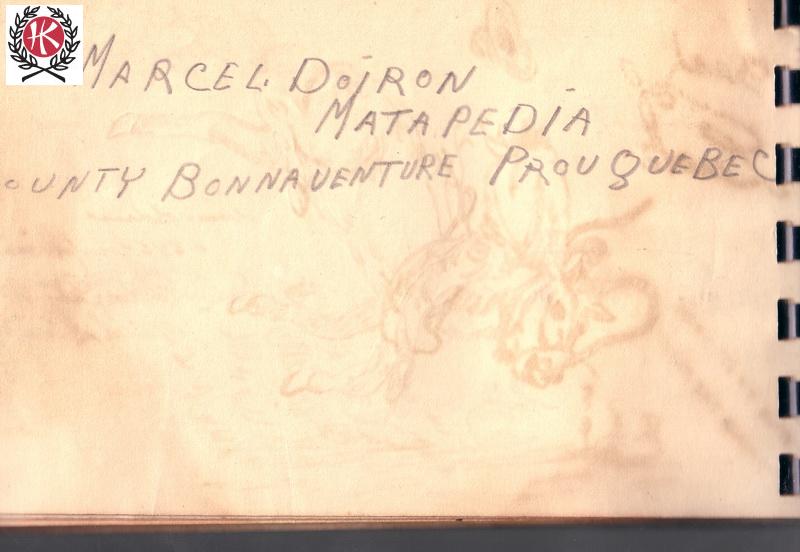 HK
MARCEL. DOIRON
MATAPEDIA
OUNTY BONNAVENTURE PROU QUEBEC